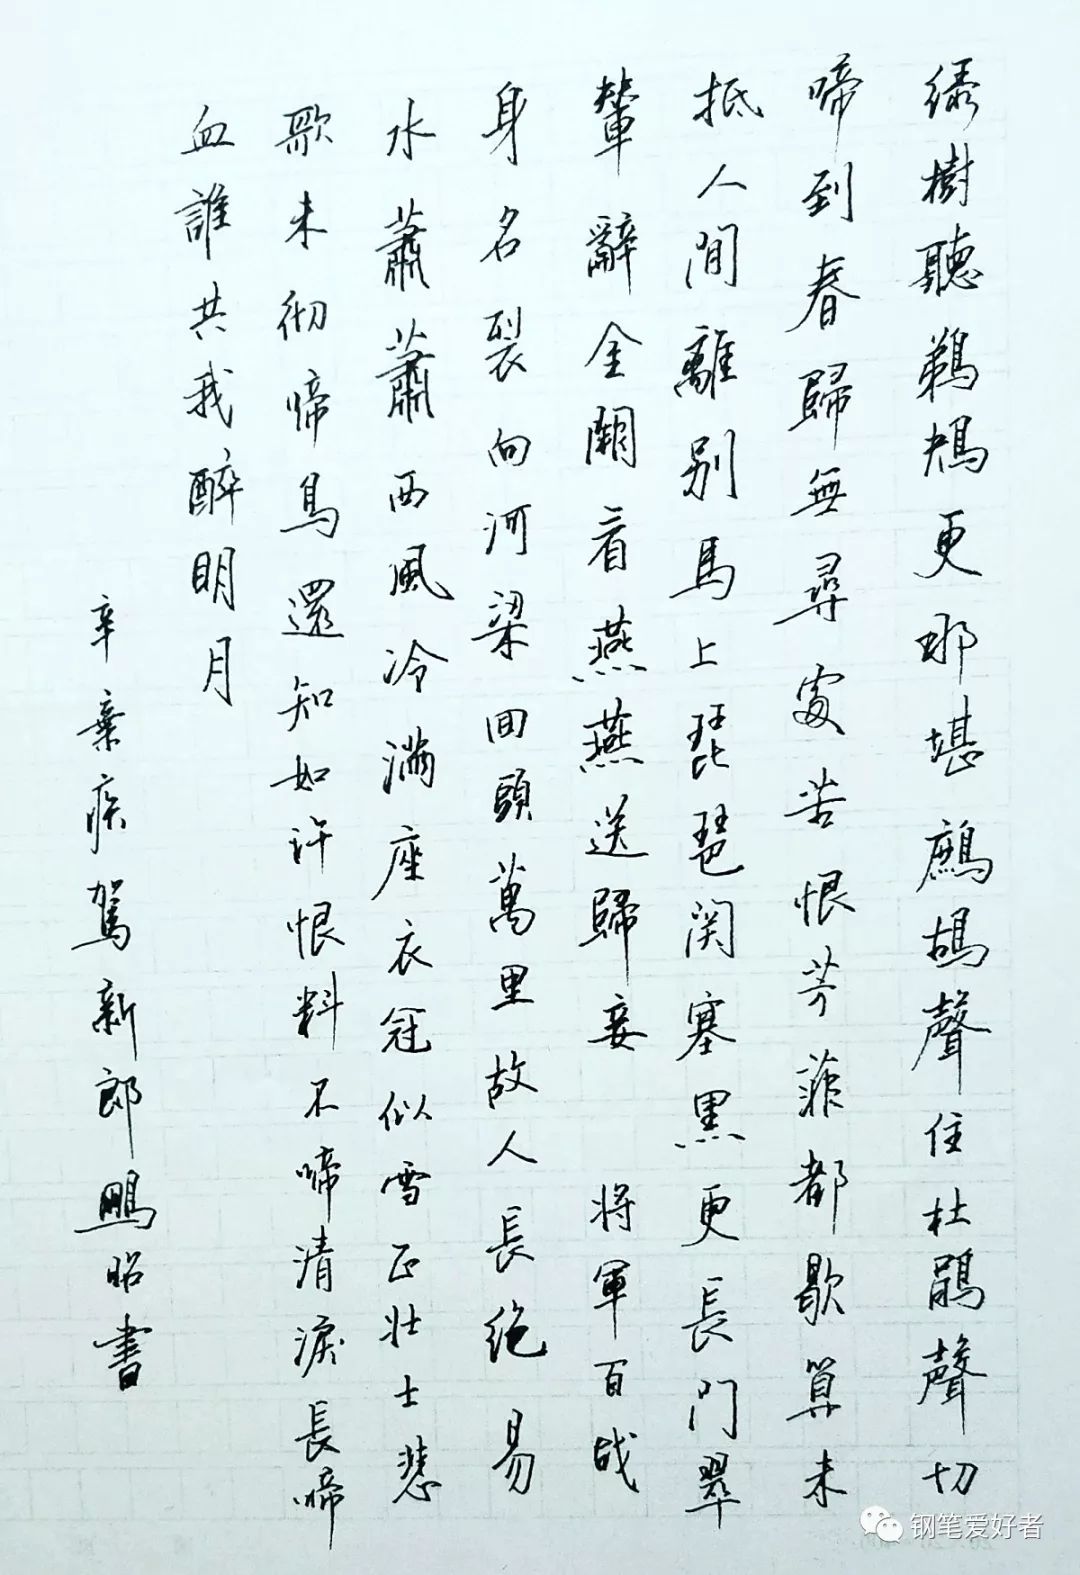 绿樹聽鵜鴂更那堪鷓鴣聲住杜鵑聲切
啼到春歸無尋處苦恨芳菲都歇算未
抵人間離别馬上琵琶関塞黑更長門翠
輦辭金闕看燕燕送歸妾 将軍百战
身名裂向河梁回頭萬里故人長绝易
水蕭蕭西風冷滿座衣冠似雪正壮士悲
歌未彻啼鳥還知如许恨料不啼清淚長啼
血誰共我醉明月
辛棄疾駕新郎鵬昭書
钢笔爱好者